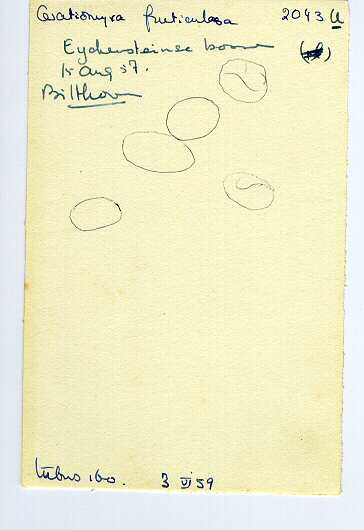 Ceratiomyxa fruticulosa 2043 U
Eyckensteinse bosse
15 Aug 57.
Bilthoven
160. 3 VI 59